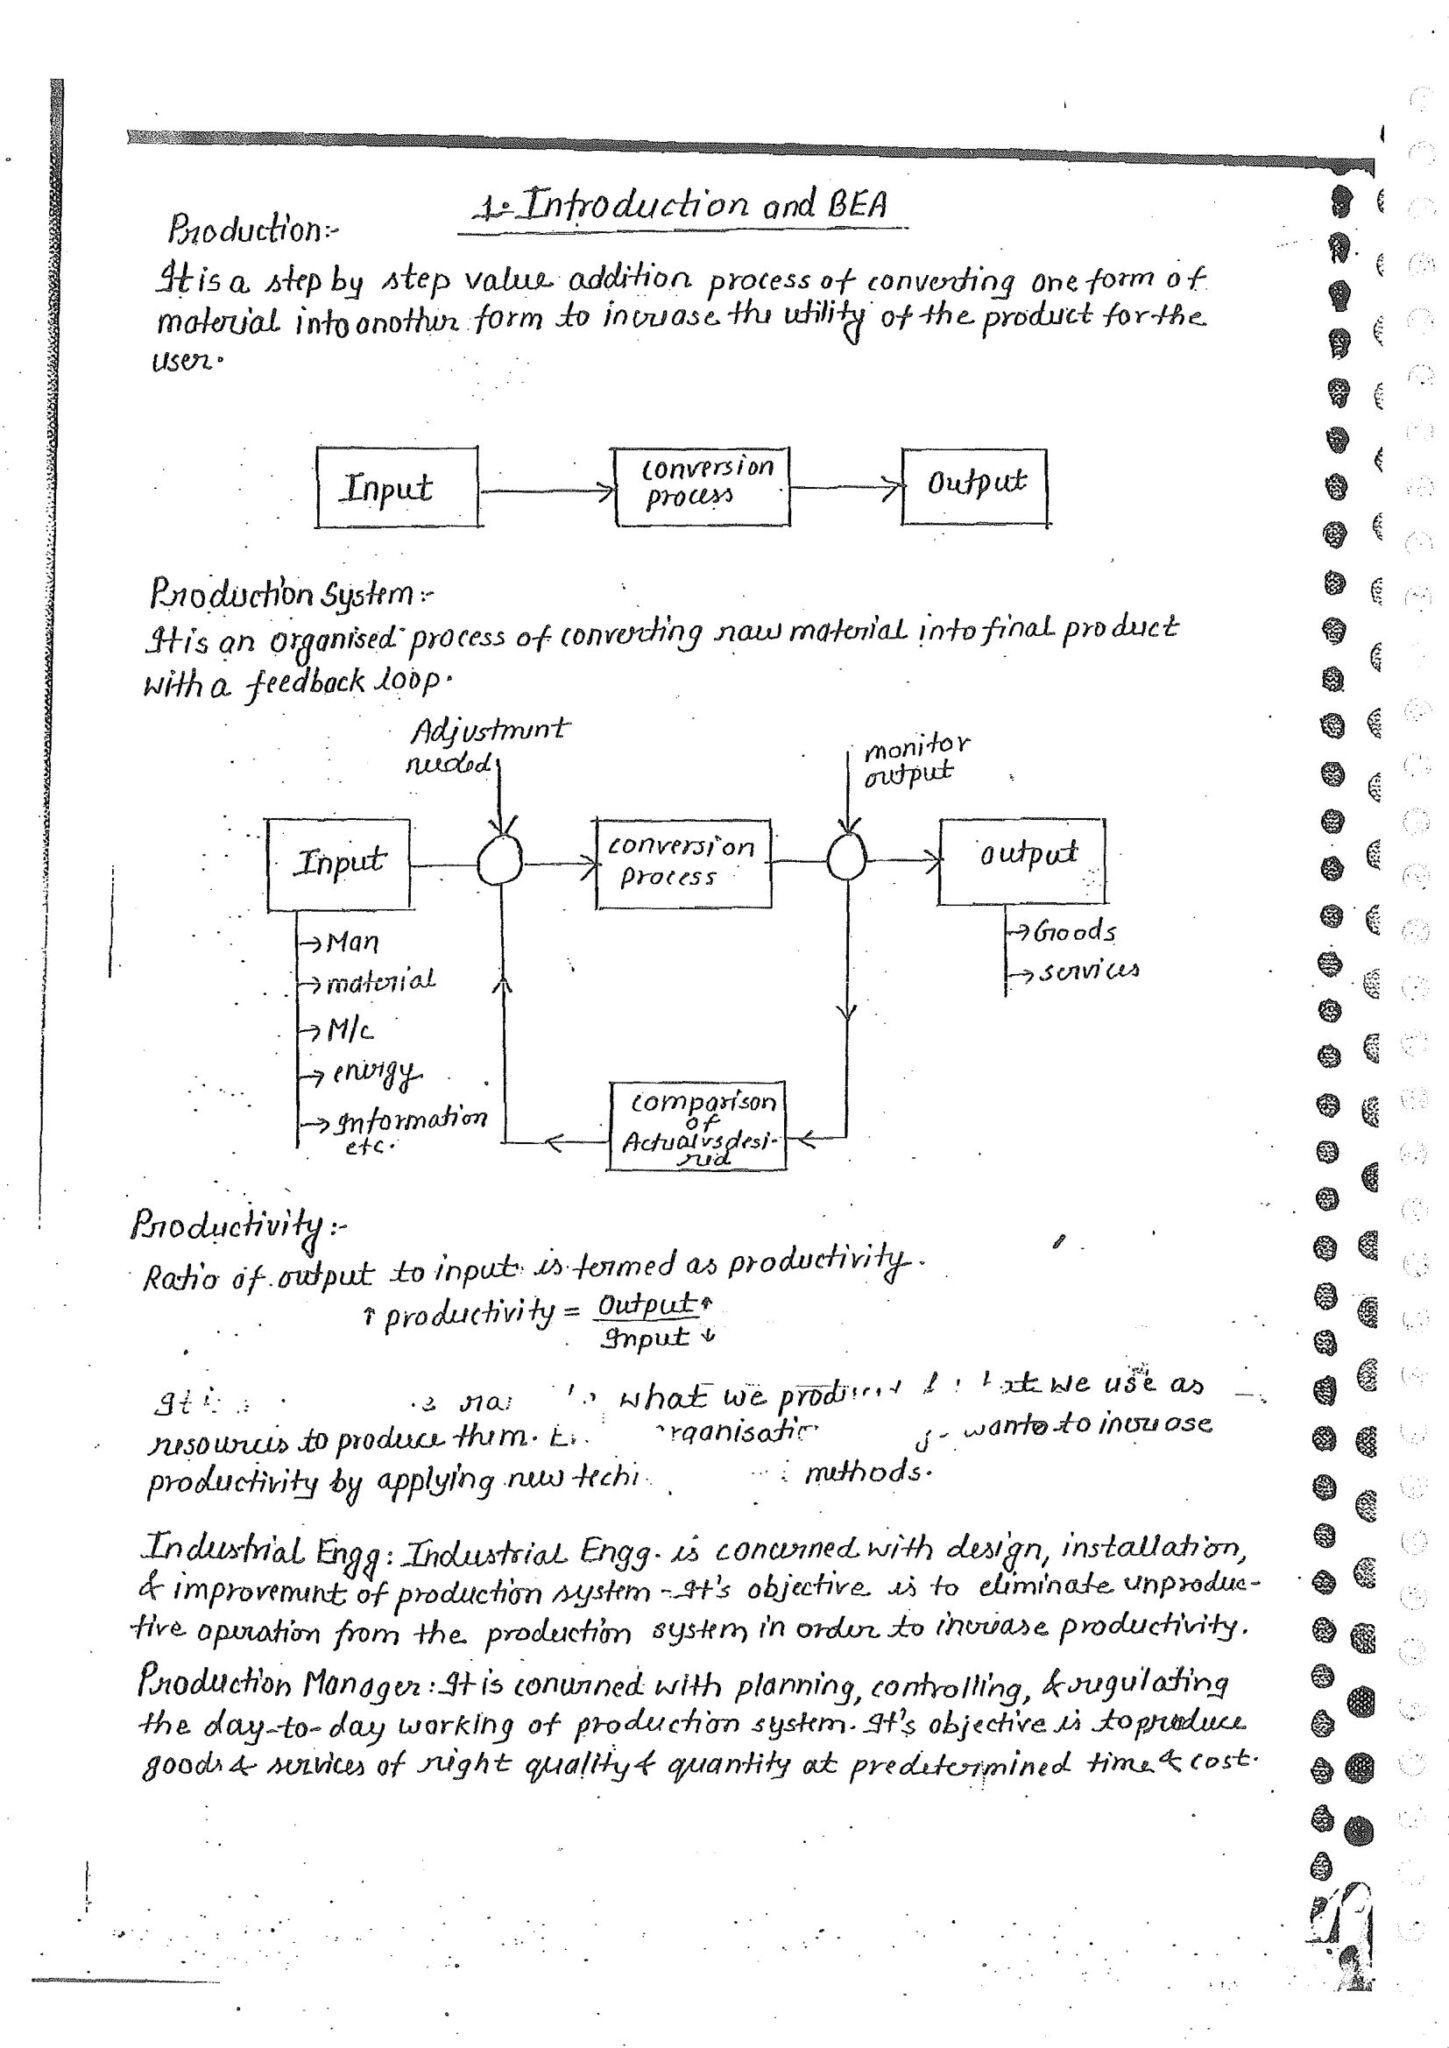 1. Introduction and BEA
Production:-
It is a step by step value addition process of converting one form of
material into another form to increase the utility of the product for the
user.
Input
conversion
process
Output
Production System:-
It is an organised process of converting raw material into final product
with a feedback loop.
Adjustment
needed
monitor
output
Input
conversion
process
output
→ Man
→ material
→ M/c
→ energy
→ Information
etc.
→ Goods
→ services
comparison
of
Actual vs desi-
red
Productivity:-
Ratio of output to input is termed as productivity.
↑ productivity = Output ↑
Input ↓
It what we we use as
resources to produce them. wants to increase
productivity by applying new methods.
Industrial Engg: Industrial Engg. is concerned with design, installation,
& improvement of production system - It's objective is to eliminate unproduc-
tive operation from the production system in order to increase productivity.
Production Manager: It is concerned with planning, controlling, & regulating
the day-to-day working of production system. It's objective is to produce
goods & services of right quality & quantity at predetermined time & cost.